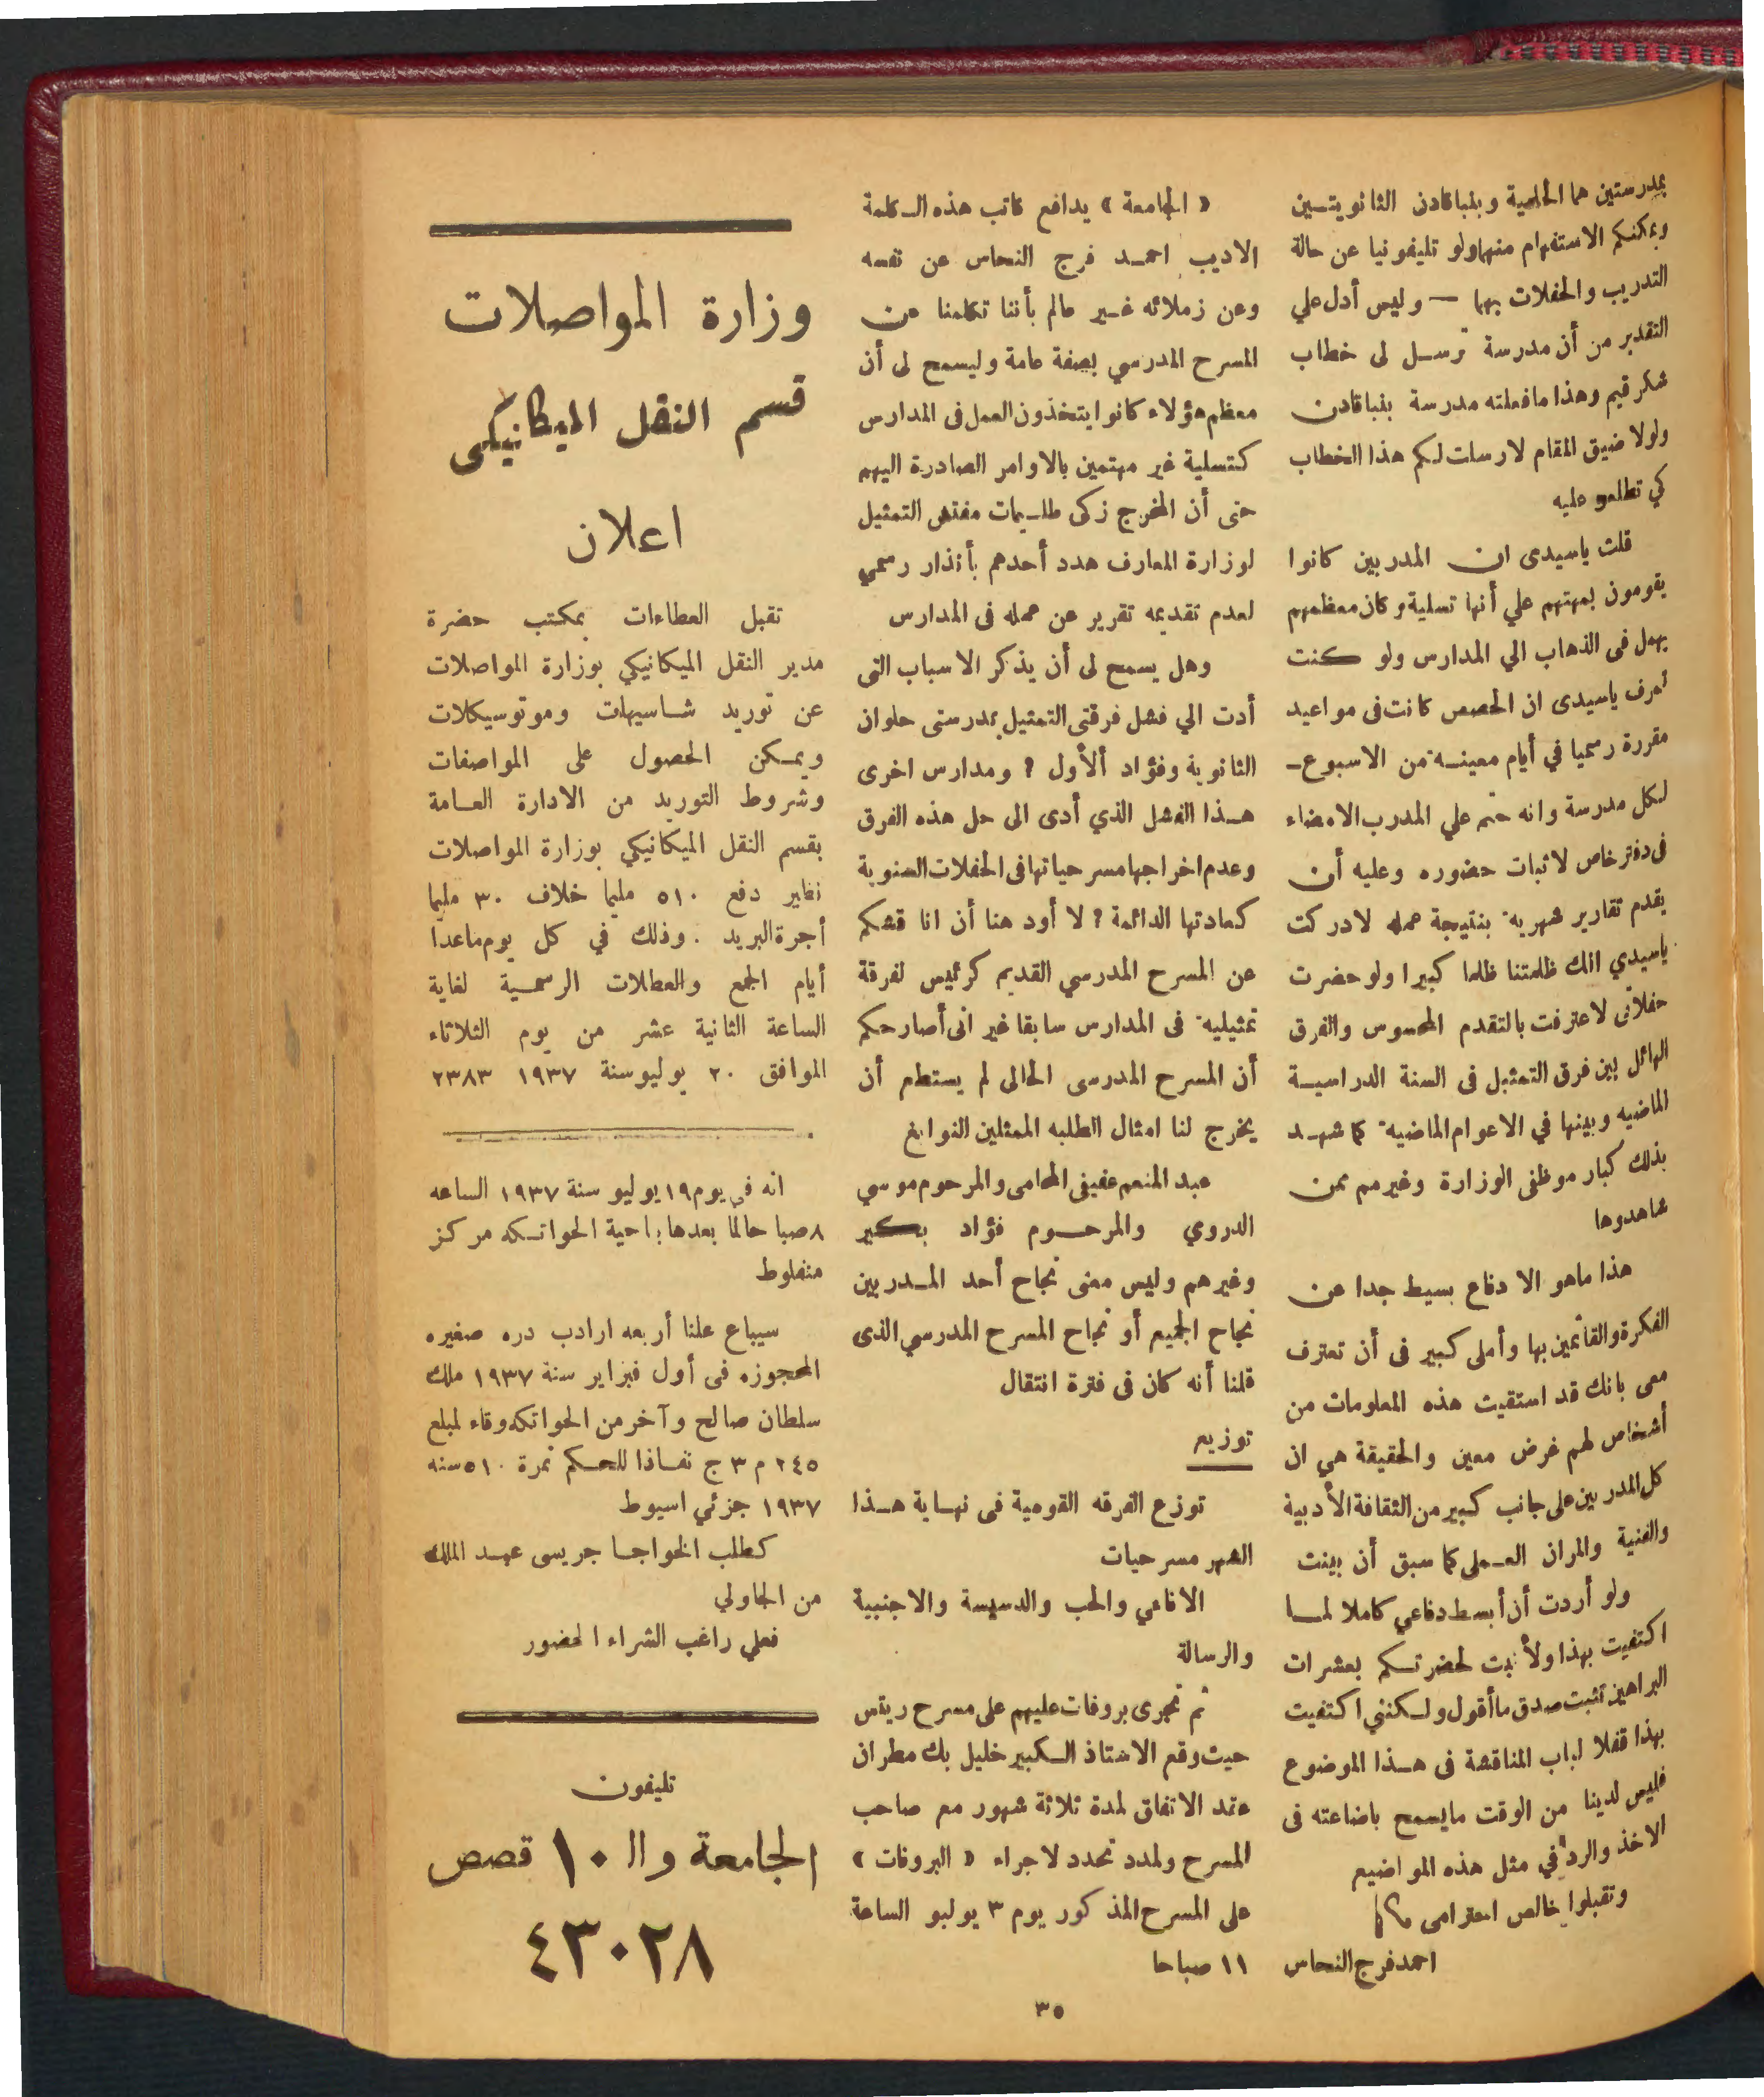 بمدرستين هما الحلمية وبنباقادن الثانويتـين
ويمكنكم الاستفهام منهما ولو تليفونيا عن حالة
التدريب والحفلات بهما — وليس أدل علي
التقدير من أن مدرسة ترسـل لى خطاب
شكر قيم وهذا ما فعلته مدرسة بنباقادن
ولولا ضيق المقام لارسلت لكم هذا الخطاب
كي تطلعو عليه
قلت ياسيدى ان المدربين كانوا
يقومون بمهمتهم علي أنها تسلية وكان معظمهم
يهمل فى الذهاب الي المدارس ولو كنت
تعرف ياسيدى ان الحصص كانت فى مواعيد
مقررة رسميا في أيام معينـة من الاسبوع ـ
لكل مدرسة وانه حتم علي المدرب الامضاء
فى دفتر خاص لاثبات حضوره وعليه أن
يقدم تقارير شهرية بنتيجة عمله لادركت
ياسيدي انك ظلمتنا ظلما كبيرا ولو حضرت
حفلاتى لاعترفت بالتقدم المحسوس والفرق
الهائل بين فرق التمثيل فى السنة الدراسيـة
الماضيه وبينها في الاعوام الماضية كما شهـد
بذلك كبار موظفى الوزارة وغيرهم ممن
شاهدوها
هذا ماهو الا دفاع بسيط جدا عن
الفكرة والقائمين بها وأملى كبير فى أن تعترف
معى بانك قد استقيت هذه المعلومات من
أشخاص لهم غرض معين والحقيقة هي ان
كل المدربين على جانب كبير من الثقافة الأدبية
والفنية والمران العـملى كما سبق أن بينت
ولو أردت أن أبسط دفاعي كاملا لمـا
اكتفيت بهذا ولأتيت لحضرتـكم بعشرات
البراهين تثبت صدق ما أقول ولـكنني اكتفيت
بهذا قفلا لباب المناقشة فى هـذا الموضوع
فليس لدينا من الوقت مايسمح باضاعته فى
الاخذ والرد في مثل هذه المواضيع
وتقبلوا خالص احترامى
احمد فرج النحاس
« الجامعة » يدافع كاتب هذه الـكلمة
الاديب احمـد فرج النحاس عن نفسه
وعن زملائه غـير عالم بأننا تكلمنا عن
المسرح المدرسي بصفة عامة وليسمح لى أن
معظم هؤلاء كانوا يتخذون العمل فى المدارس
كتسلية غير مهتمين بالاوامر الصادرة اليهم
حتى أن المخرج زكى طلـيمات مفتش التمثيل
لوزارة المعارف هدد أحدهم بأنذار رسمي
لعدم تقديمه تقرير عن عمله فى المدارس
وهل يسمح لى أن يذكر الاسباب التى
أدت الي فشل فرقتى التمثيل بمدرستى حلوان
الثانوية وفؤاد ألأول ؟ ومدارس اخرى
هـذا الفشل الذي أدى الى حل هذه الفرق
وعدم اخراجها مسرحياتها فى الحفلات السنوية
كعادتها الدائمة ؟ لا أود هنا أن انا قشكم
عن المسرح المدرسي القديم كرئيس لفرقة
تمثيلية فى المدارس سابقا غير انى أصارحكم
أن المسرح المدرسى الحالى لم يستطع أن
يخرج لنا امثال الطلبه الممثلين النوابغ
عبد المنعم عفيفى المحامى والمرحوم موسي
الدروي والمرحـوم فؤاد بـكير
وغيرهم وليس معنى نجاح أحد المـدربين
نجاح الجميع أو نجاح المسرح المدرسي الذى
قلنا أنه كان فى فترة انتقال
توزيع
توزع الفرقه القومية فى نهـاية هـذا
الشهر مسرحيات
الافاعي والحب والدسيسة والاجنبية
والرسالة
ثم تجرى بروفات عليهم على مسرح ريتس
حيث وقع الاستاذ الـكبير خليل بك مطران
عقد الاتفاق لمدة ثلاثة شهور مع صاحب
المسرح ولمدد تحدد لاجراء « البروفات »
على المسرح المذكور يوم ٣ يوليو الساعة
١١ صباحا
وزارة المواصلات
قسم النقل الميكانيكى
اعلان
تقبل العطاءات بمكتب حضرة
مدير النقل الميكانيكي بوزارة المواصلات
عن توريد شـاسيهات وموتوسيكلات
ويمـكن الحصول على المواصفات
وشروط التوريد من الادارة العـامة
بقسم النقل الميكانيكي بوزارة المواصلات
نظير دفع ٥١٠ مليما خلاف ٣٠ مليما
أجرة البريد . وذلك في كل يوم ماعدا
أيام الجمع والعطلات الرسمـية لغاية
الساعة الثانية عشر من يوم الثلاثاء
الموافق ٢٠ يوليو سنة ١٩٣٧ ٢٣٨٣
انه فى يوم ١٩ يوليو سنة ١٩٣٧ الساعه
٨ صبا حالما بعدها بناحية الحواتـكه مركز
منفلوط
سيباع علنا أربعه ارادب دره صغيره
المحجوزه فى أول فبراير سنة ١٩٣٧ ملك
سلطان صالح وآخر من الحواتكه وفاء لمبلغ
٢٤٥ م ٣ ج نفـاذا للحـكم نمرة ٥١٠ سنه
١٩٣٧ جزئي اسيوط
كطلب الخواجـا جريسى عبـد الملك
من الجاولي
فعلي راغب الشراء الحضور
تليفون
الجامعة والـ ١٠ قصص
٤٣٠٢٨
٣٥